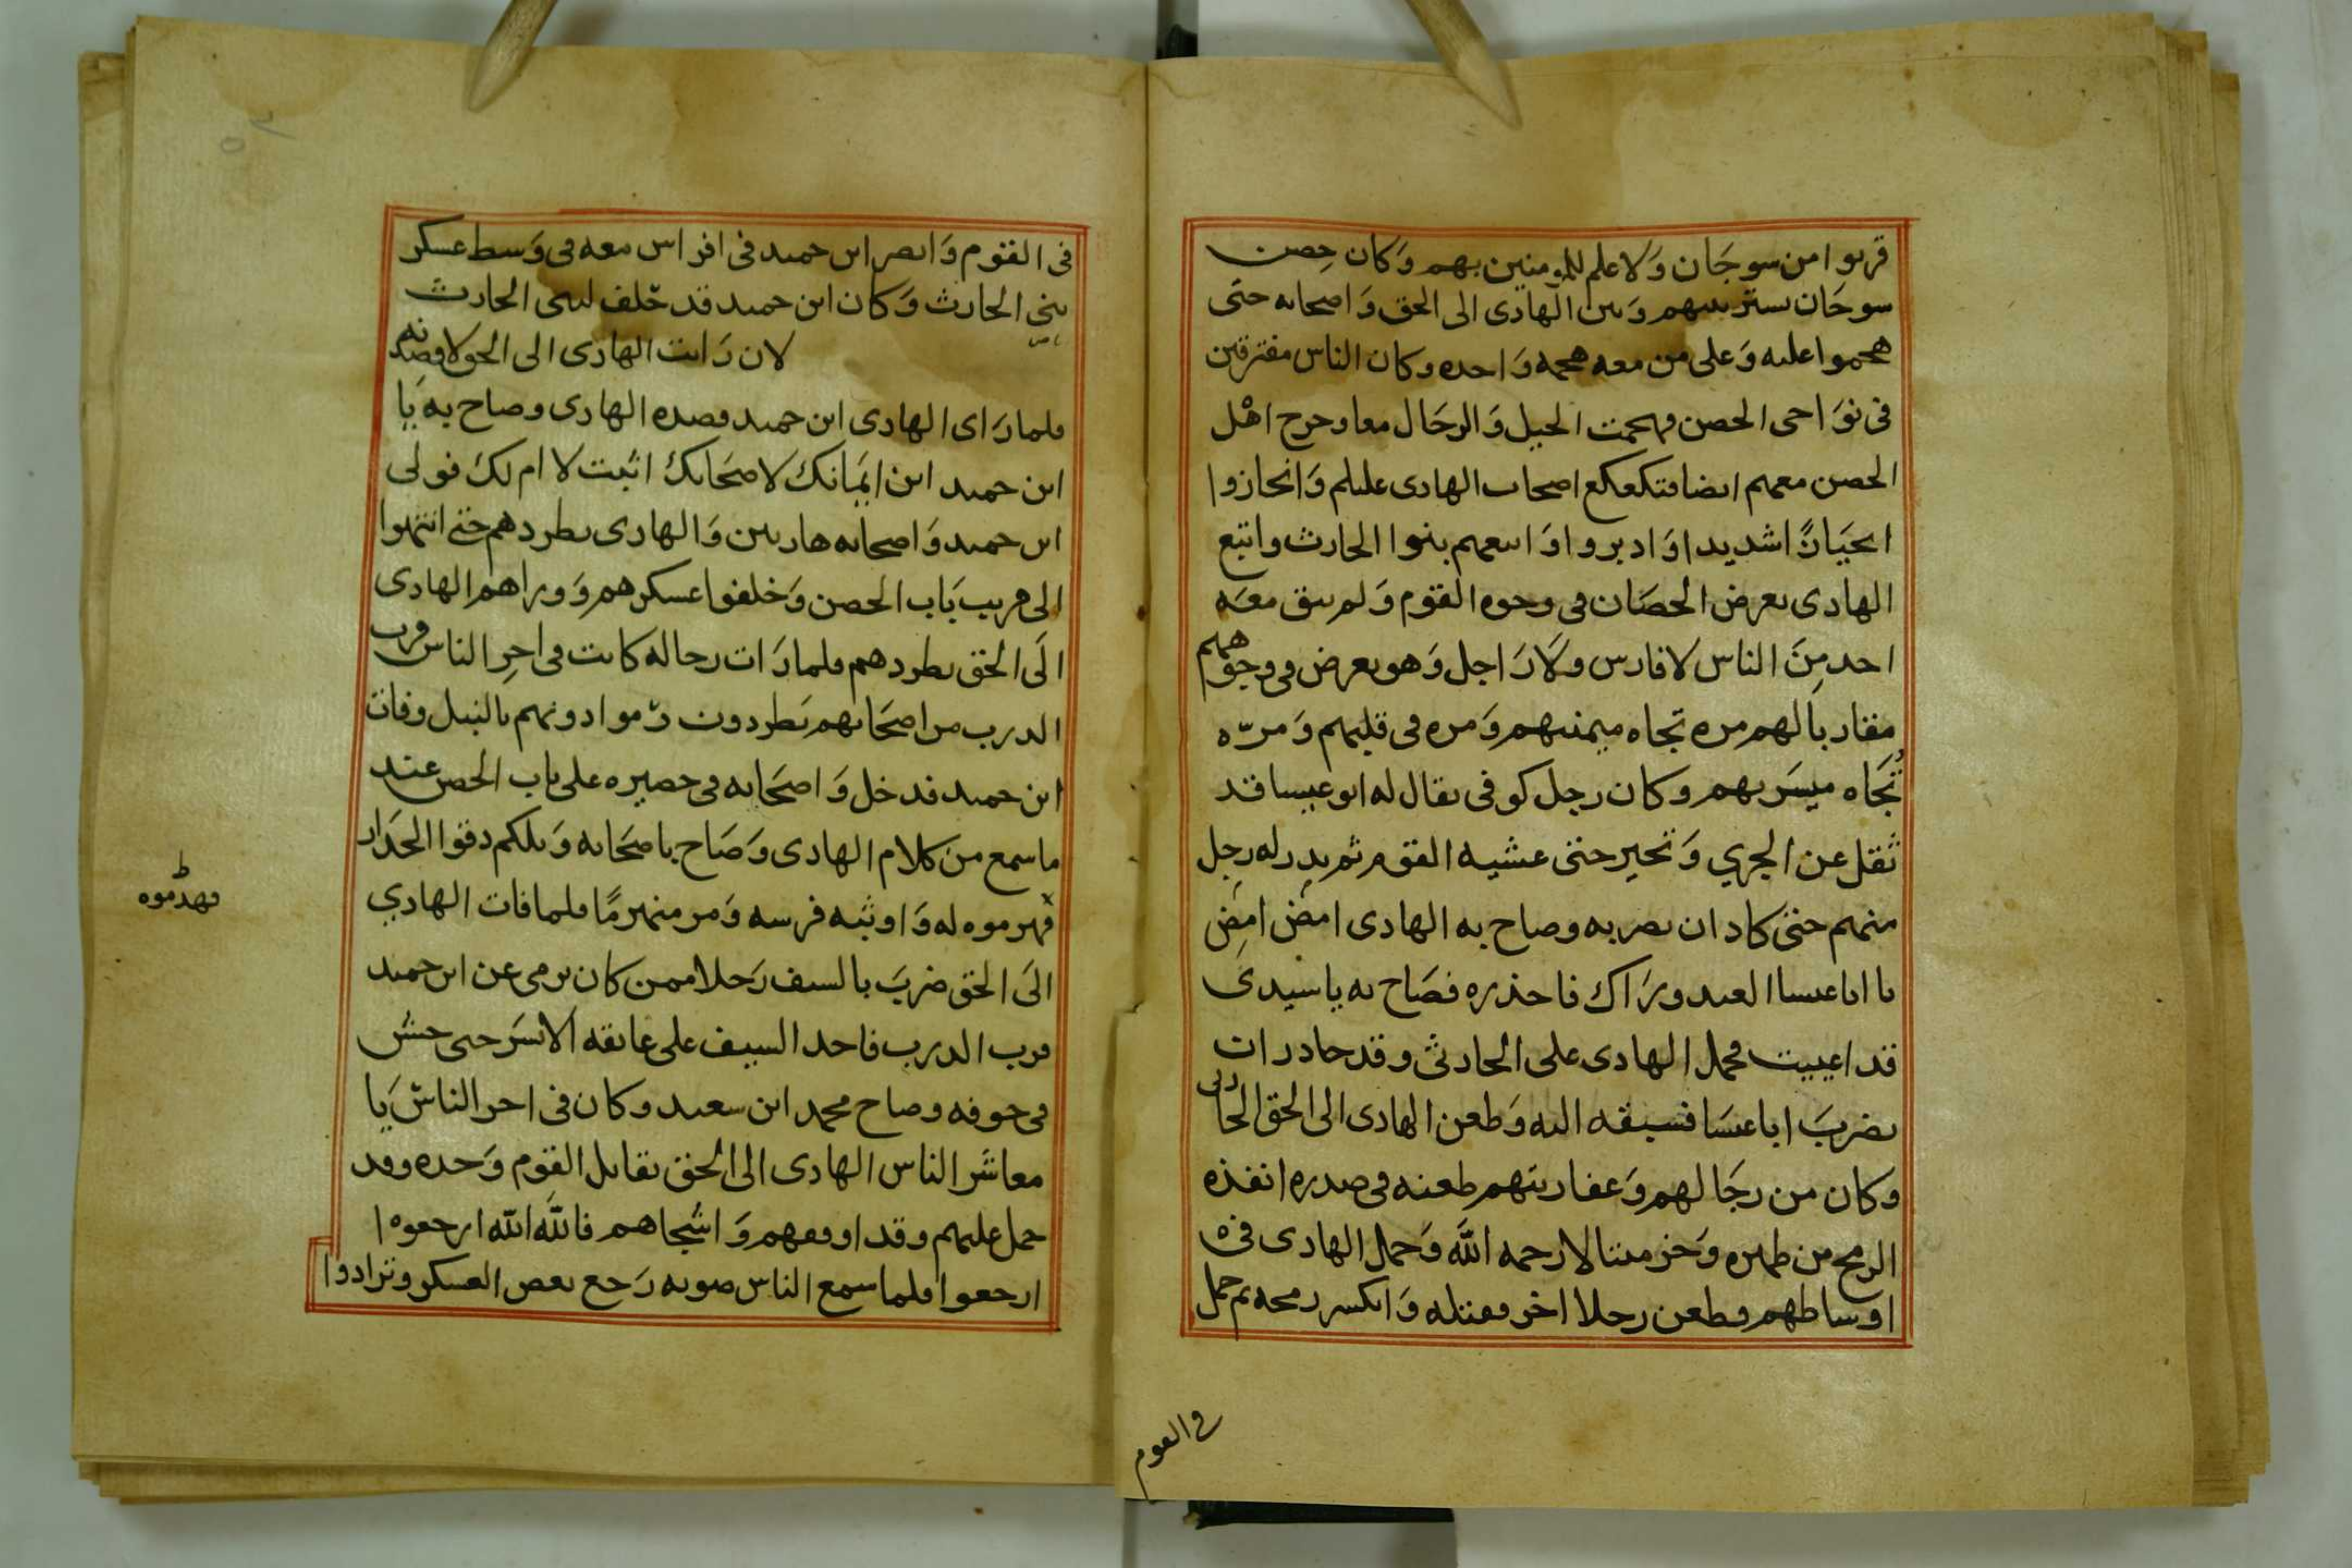 قربوا من سوجان ولا علم للمومنين بهم وكان حصن
سوجان يستر بينهم وبين الهادى الى الحق واصحابه حتى
هجموا عليه وعلى من معه هجمه واحده وكان الناس مفترقين
فى نواحى الحصن فهجمت الخيل والرجال معا وخرج اهل
الحصن معهم ايضا فتكعكع اصحاب الهادى عليلم وانحازوا
انحيازا شديدا وادبروا واتبعهم بنوا الحارث واتبع
الهادى يعرض الحصان فى وجوه القوم ولم يبق معه
احد من الناس لا فارس ولا راجل وهو يعرض فى وجوههم
مره تجاه ميمنتهم ومره فى قلبهم ومره
تجاه ميسرتهم وكان رجل كوفى يقال له ابو عيسا قد
ثقل عن الجري وتحير حتى غشيه القوم ثم بدر له رجل
منهم حتى كاد ان يضربه وصاح به الهادى امض امض
يا ابا عيسا العبد وراك فاحذره فصاح به يا سيدى
قد اعييت فحمل الهادى على الحارثى وقد حاذر ان
يضرب ابا عيسا فسبقه اليه وطعن الهادى الى الحق الحارثى
وكان من رجالهم وعفاريتهم طعنه فى صدره انفذه
الرمح من ظهره وخر ميتا لا رحمه الله وحمل الهادى فى
اوساطهم فطعن رجلا اخر فقتله وانكسر رمحه ثم حمل
فى القوم
فى القوم وابصر ابن حميد فى افراس معه فى وسط عسكر
بنى الحارث وكان ابن حميد قد حلف لبنى الحارث
لان رايت الهادى الى الحق لاقصدنه
فلما راى الهادى ابن حميد قصده الهادى وصاح به يا
ابن حميد اين ايمانك لاصحابك اثبت لا ام لك فولى
ابن حميد واصحابه هاربين والهادى يطردهم حتى انتهوا
الى قريب باب الحصن وخلفوا عسكرهم ووراهم الهادى
الى الحق يطردهم فلما رات رجاله كانت فى اخر الناس قرب
الدرب من اصحابهم يطردون رموا دونهم بالنبل وفات
ابن حميد فدخل واصحابه فى حصيره على باب الحصن عند
ما سمع من كلام الهادى وصاح باصحابه ويلكم دقوا الجدار
فهدموه له واوثبه فرسه ومر منهزما فلما فات الهادي
فهدموه
الى الحق ضرب بالسيف رجلا ممن كان يرمى عن ابن حميد
قرب الدرب فاخذ السيف على عاتقه الايسر حتى حش
فى جوفه وصاح محمد ابن سعيد وكان فى اخر الناس يا
معاشر الناس الهادى الى الحق يقاتل القوم وحده وقد
حمل عليهم وقد اوقعهم واشجاهم فالله الله ارجعوه
ارجعوا فلما سمع الناس صوته رجع بعض العسكر وترادوا